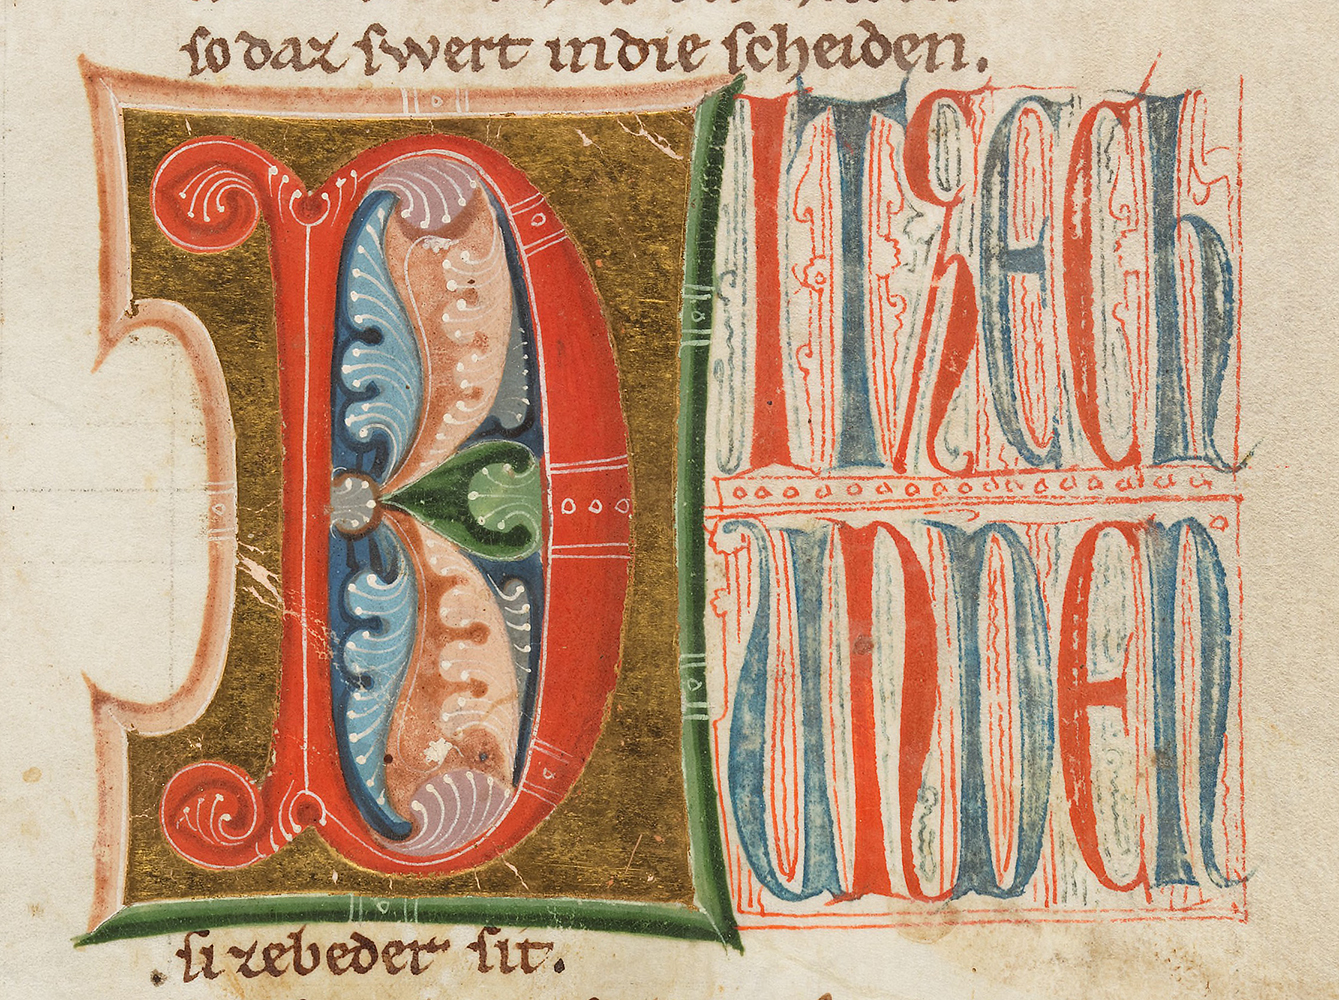 so daz swert indie scheiden.
DITZECH
UNDEN
si zebeder sit.